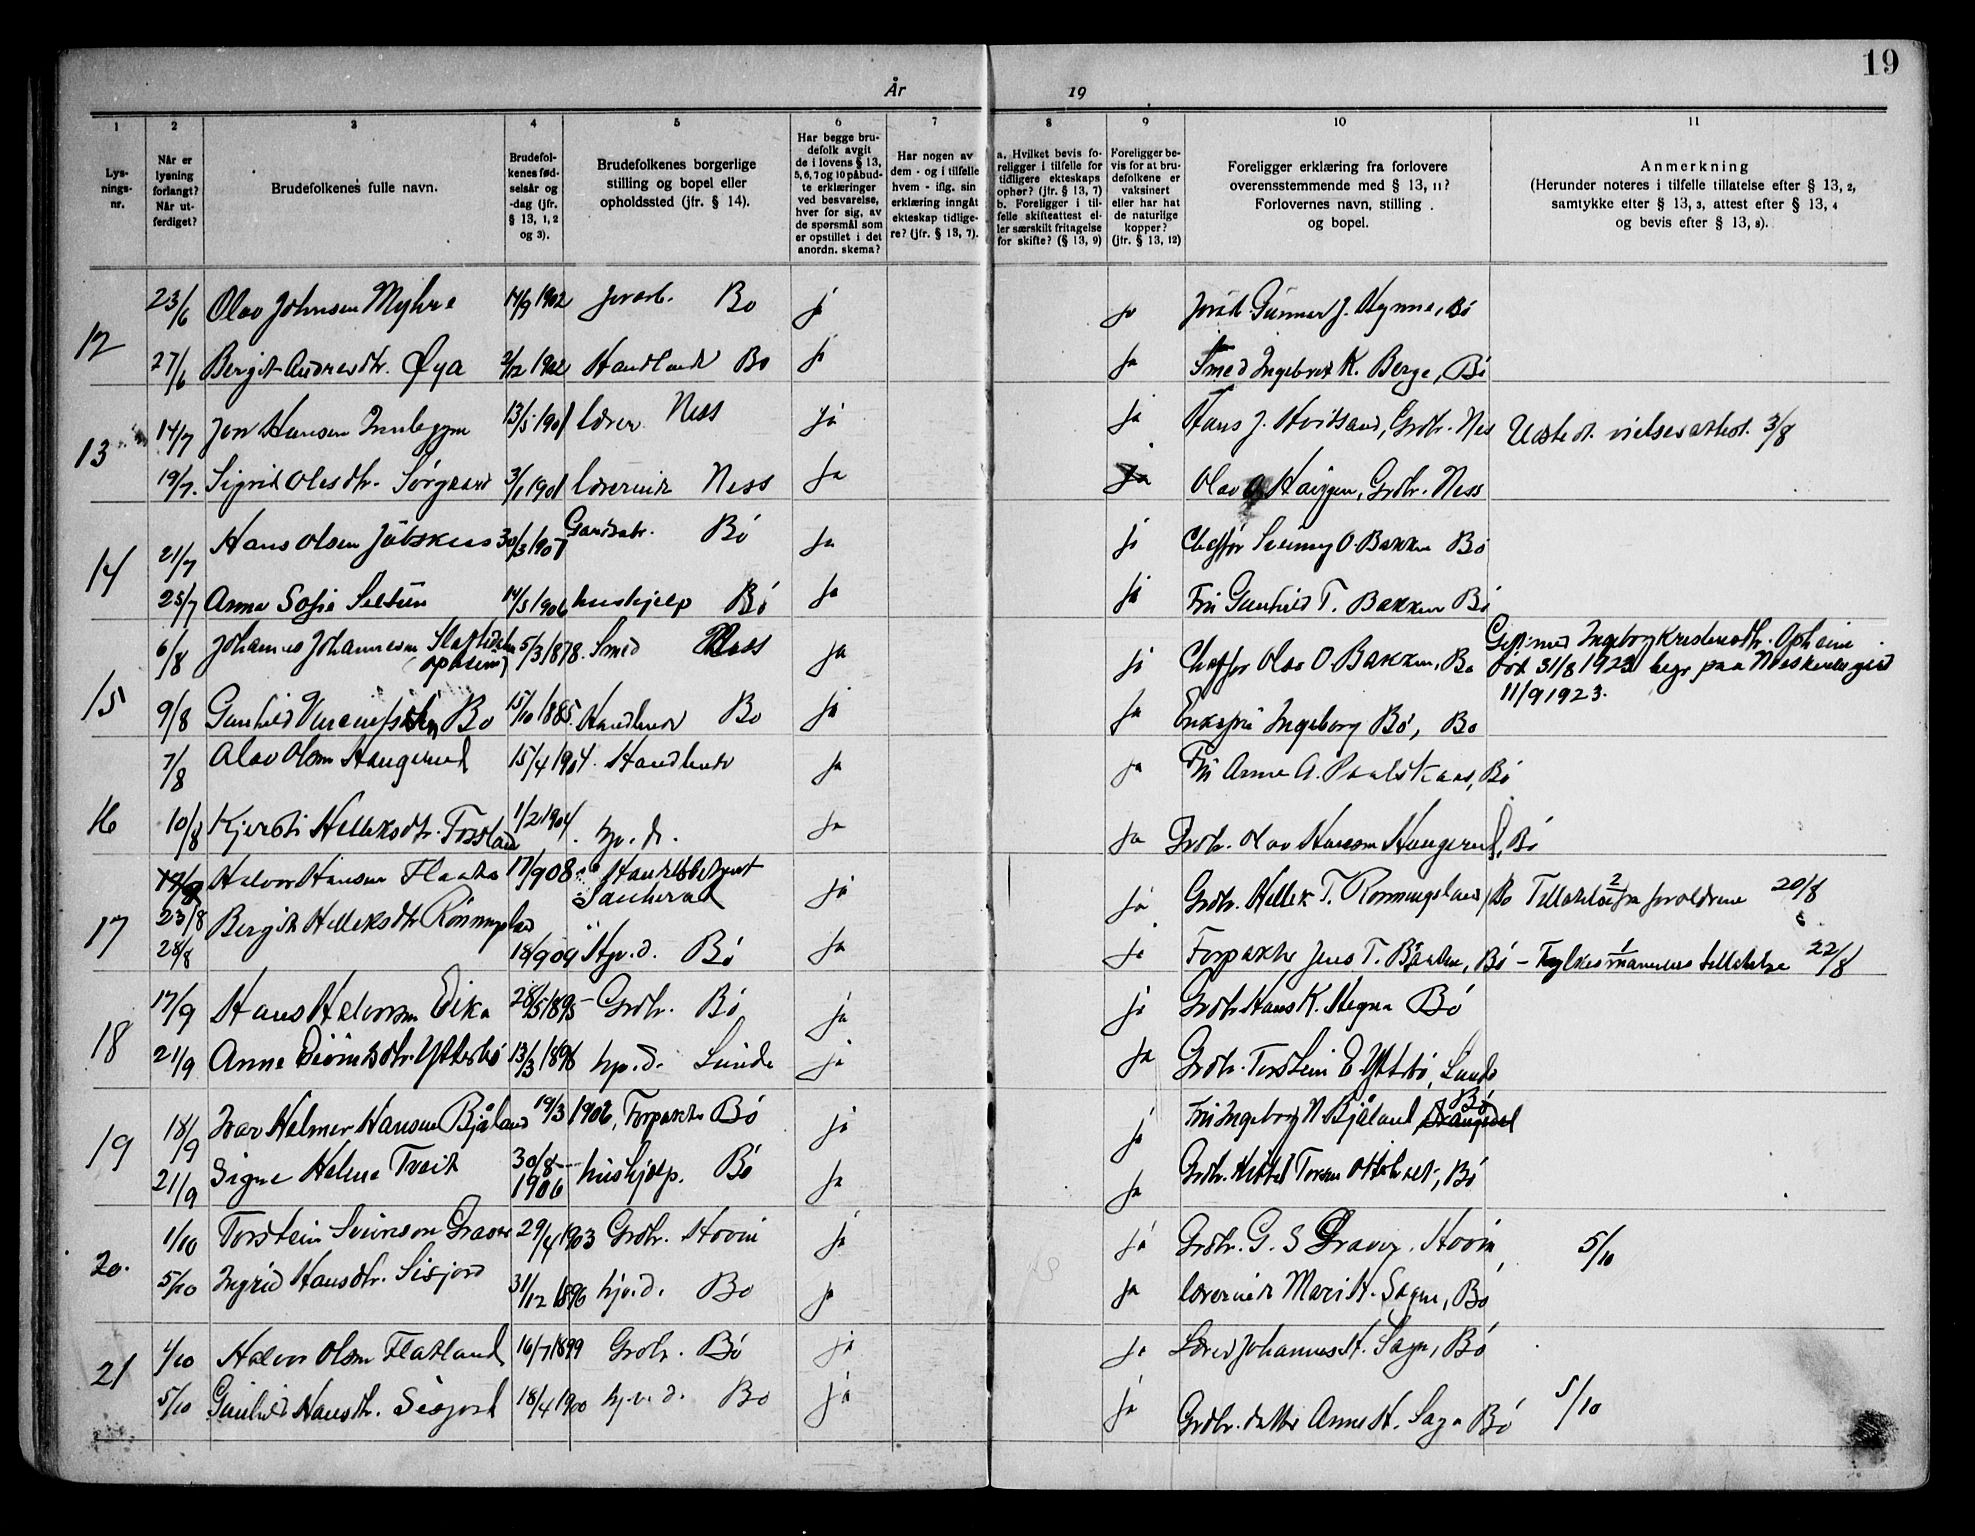 19
År 19
1 2 3 4 5 6 7 8 9 10 11
Lys-
nings-
nr.
Når er
lysning
forlangt?
Når ut-
ferdiget?
Brudefolkenes fulle navn.
Brudefol-
kenes fød-
selsår og
-dag (jfr.
§ 13, 1, 2
og 3).
Brudefolkenes borgerlige
stilling og bopel eller
opholdssted (jfr. § 14).
Har begge bru-
defolk avgit
de i lovens § 13,
5, 6, 7 og 10 påbud-
te erklæringer
ved besvarelse,
hver for sig, av
de spørsmål som
er opstillet i det
anordn. skema?
Har nogen av
dem - og i tilfelle
hvem - iflg. sin
erklæring inngåt
ekteskap tidlige-
re? (jfr. § 13, 7).
a. Hvilket bevis fo-
religger i tilfelle for
tidligere ekteskaps
ophør? (jfr. § 13, 7)
b. Foreligger i til-
felle skifteattest el-
ler særskilt fritagelse
for skifte? (§ 13, 9)
Foreligger be-
vis for at bru-
defolkene er
vaksinert
eller har hat
de naturlige
kopper?
(jfr. § 13, 12)
Foreligger erklæring fra forlovere
overensstemmende med § 13, 11?
Forlovernes navn, stilling
og bopel.
Anmerkning
(Herunder noteres i tilfelle tillatelse efter § 13, 2,
samtykke efter § 13, 3, attest efter § 13, 4
og bevis efter § 13, 8).
12 23/6 Olav Johnsen Myhre 14/9 1902 jorarb. Bø ja ja Gunnar J. Bø
27/6 Bergit Andresdtr. Øya 2/12 1902 Handlende Bø ja ja Smed Ingebret K. Berge, Bø
13 14/7 Jon Hansen 13/5 1901 lærer Ness ja ja Hans J. Hvitsand, Grdbr. Nes Utstedt vielsesattest. 3/8
19/7. Sigrid Olesdtr. Sørgaard 3/1 1901 lærerinde Ness ja ja Olav Haugen, Grdbr. Ness
14 21/7 Hans Olsen 30/3 1907 Gardsbr. Bø ja ja Chaffør O. Bakken Bø
25/7 Anna Sofie 14/5 1906 hushjelp Bø ja ja Fru Gunhild T. Bakken Bø
15 6/8 Johannes Johannesen 5/3 1878. Smed Ness ja ja Chaffør Olav O. Bakken, Bø Gift med Ingeborg Kristensdtr. Opheim
død 31/8 1923 begr. paa
11/9 1923.
9/8 Gunhild Bø 15/10 1885. Handlende Bø ja ja Enkefru Ingeborg Bø, Bø
16 7/8 Olav Olsen Haugerud 15/4 1904. Handlende ja ja Fru Anne A. Bø
10/8 Kjersti Helleksdtr. 1/2 1904. hjv. d. ja ja Grdbr. Olav Hansen Haugerud, Bø
17 19/8 Halvor Hansen 17/9 08 Handelsbetjent
Sauherad ja ja Grdbr. Hellek T. Bø Tillatelse fra foreldrene 20/8
23/8 Bergit Helleksdtr.
28/8 18/9 09 Hjv. d. Bø ja ja Forpakter Jens T. Bø - Fylkesmannens tillatelse 22/8
18 17/9 Hans Halvorsen Eika 28/5 1895 Grdbr. Bø ja ja Grdbr. Hans K. Hegna Bø
21/9 Anne Ytterbø 13/3 1896 hjv. d. Lunde ja ja Grdbr. Torstein E. Ytterbø, Lunde
19 18/9 Ivar Halmer Hansen Bjåland 19/3 1902, Forpakter Bø ja ja Fru Ingeborg N. Bjåland Bø Drangedal
21/9 Signe Helene Tveit 30/8
1906 hushjelp. Bø ja ja Grdbr. Kittel Bø
20. 1/10 Torstein 29/4 1903 Grdbr. Hovin ja ja Grdbr. G. S. Hovin 5/10
5/10 Ingrid Hansdtr. Sisjord 31/12 1890 hjv. d. Bø ja ja Lærerinde Mari H. Sagn, Bø
21 4/10 Halvor Olsen Flatland 16/7 1899 Grdbr. Bø ja ja Lærer Johannes H. Sagn, Bø
5/10 Gunhild Hansdtr. Sisjord 18/4 1900 hj. v. d. Bø ja ja Grdbr. datter Anne H. Saga Bø 5/10